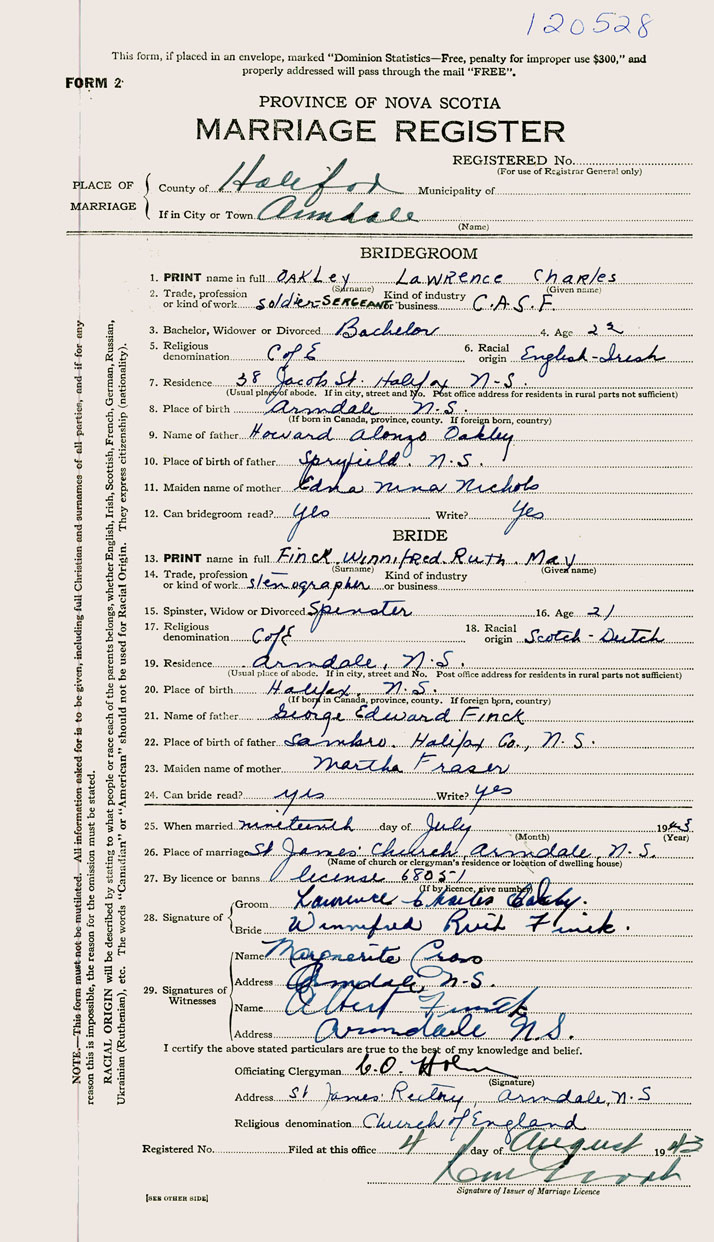 120528
This form, if placed in an envelope, marked "Dominion Statistics—Free, penalty for improper use $300," and
properly addressed will pass through the mail "FREE".
FORM 2
PROVINCE OF NOVA SCOTIA
MARRIAGE REGISTER
REGISTERED No.
(For use of Registrar General only)
PLACE OF MARRIAGE
County of Halifax Municipality of
If in City or Town Armdale
(Name)
BRIDEGROOM
1. PRINT name in full OAKLey LAWRENCE Charles
(Surname) (Given name)
2. Trade, profession or kind of work soldier-SERGEANT Kind of industry or business C.A.S.F.
3. Bachelor, Widower or Divorced Bachelor 4. Age 22
5. Religious denomination C of E 6. Racial origin English-Irish
7. Residence 38 Jacob St. Halifax N-S.
(Usual place of abode. If in city, street and No. Post office address for residents in rural parts not sufficient)
8. Place of birth Armdale N.S.
(If born in Canada, province, county. If foreign born, country)
9. Name of father Howard Alonzo Oakley
10. Place of birth of father Spryfield. N.S.
11. Maiden name of mother Edna Nina Nichols
12. Can bridegroom read? yes Write? Yes
BRIDE
13. PRINT name in full Finck Winnifred Ruth May
(Surname) (Given name)
14. Trade, profession or kind of work stenographer Kind of industry or business
15. Spinster, Widow or Divorced Spinster 16. Age 21
17. Religious denomination C of E 18. Racial origin Scotch-Dutch
19. Residence Armdale, N.S.
(Usual place of abode. If in city, street and No. Post office address for residents in rural parts not sufficient)
20. Place of birth Halifax, N.S.
(If born in Canada, province, county. If foreign born, country)
21. Name of father George Edward Finck
22. Place of birth of father Sambro. Halifax Co., N.S.
23. Maiden name of mother Martha Fraser
24. Can bride read? yes Write? yes
25. When married nineteenth day of July 1943
(Month) (Year)
26. Place of marriage St James' Church, Armdale, N.S.
(Name of church or clergyman's residence or location of dwelling house)
27. By licence or banns license 68051
(If by licence, give number)
28. Signature of
Groom Lawrence Charles Oakley.
Bride Winnifred Ruth Finck.
29. Signatures of Witnesses
Name Marguerite
Address Armdale, N.S.
Name Albert Finck
Address Armdale N.S.
I certify the above stated particulars are true to the best of my knowledge and belief.
Officiating Clergyman C.O.
(Signature)
Address St James' Rectory, Armdale, N.S
Religious denomination Church of England
Registered No. Filed at this office 4 day of August 1943
Signature of Issuer of Marriage Licence
[SEE OTHER SIDE]
NOTE.—This form must not be mutilated. All information asked for is to be given, including full Christian and surnames of all parties, and if for any
reason this is impossible, the reason for the omission must be stated.
RACIAL ORIGIN will be described by stating to what people or race each of the parents belongs, whether English, Irish, Scottish, French, German, Russian,
Ukrainian (Ruthenian), etc. The words "Canadian" or "American" should not be used for Racial Origin. They express citizenship (nationality).